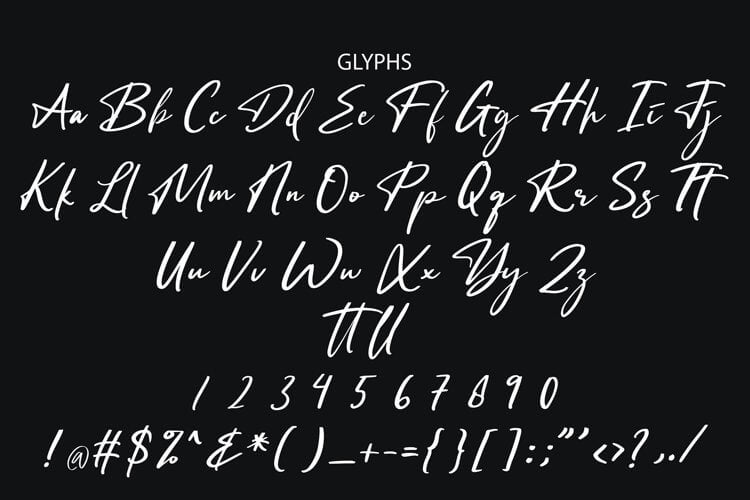 GLYPHS
Aa Bb Cc Dd Ee Ff Gg Hh Ii Jj
Kk Ll Mm Nn Oo Pp Qq Rr Ss Tt
Uu Vv Ww Xx Yy Zz
tt ll
1 2 3 4 5 6 7 8 9 0
! @ # $ % ^ & * ( ) _ + - = { } [ ] : ; " ' < > ? , . /